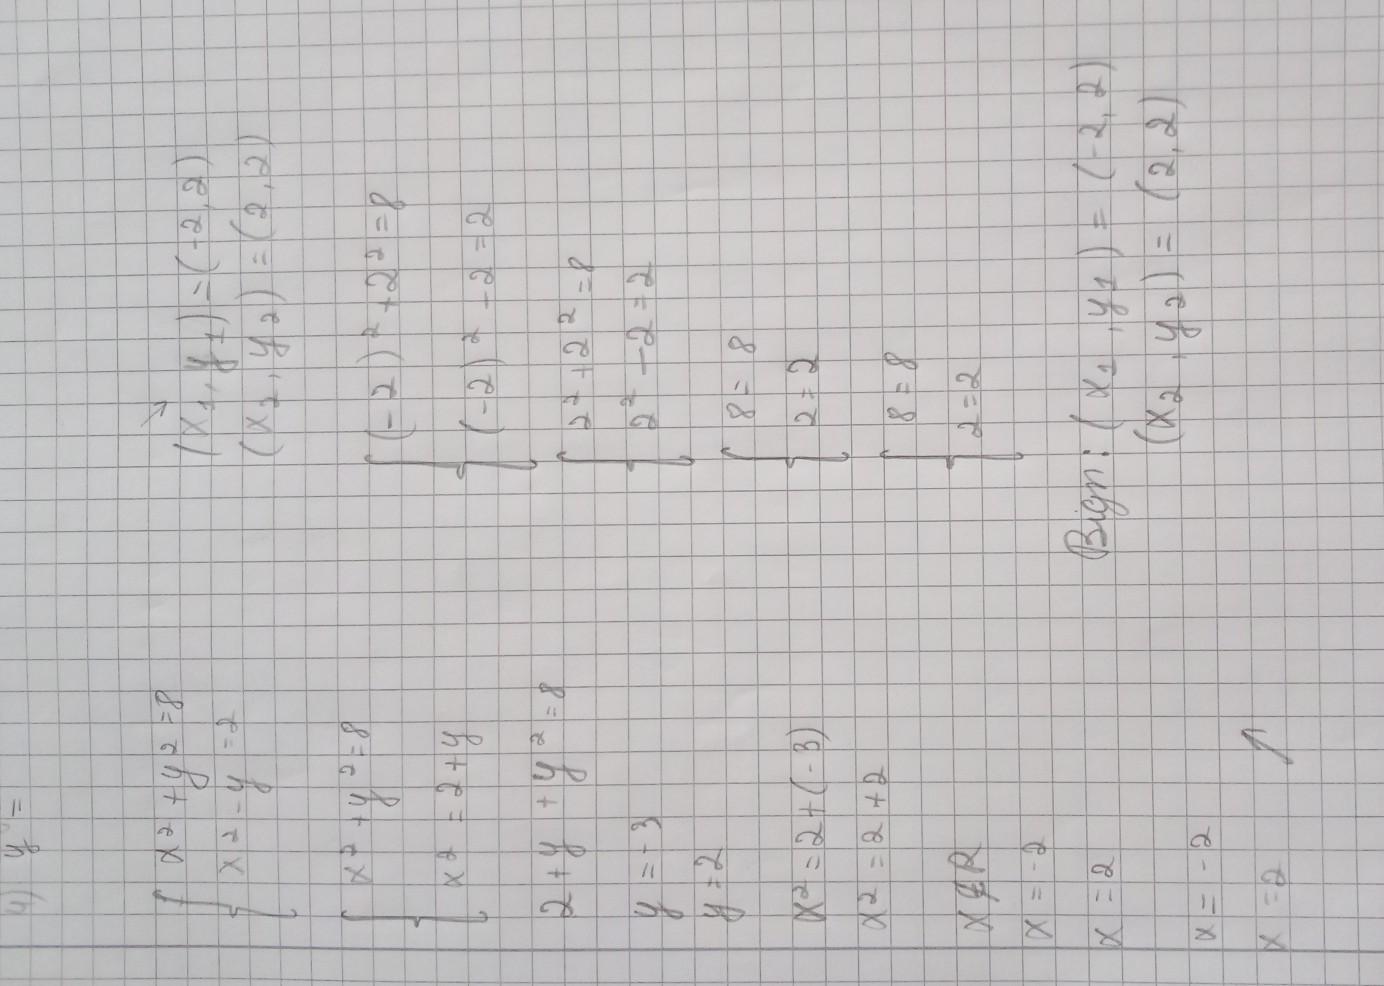 4) y =
x² + y² = 8
x² - y = 2
x² + y² = 8
x² = 2 + y
2 + y + y² = 8
y = -3
y = 2
x² = 2 + (-3)
x² = 2 + 2
x ∉ R
x = -2
x = 2
x = -2
x = 2
(x₁, y₁) = (-2, 2)
(x₂, y₂) = (2, 2)
(-2)² + 2² = 8
(-2)² - 2 = 2
2² + 2² = 8
2² - 2 = 2
8 = 8
2 = 2
8 = 8
2 = 2
Відп: (x₁, y₁) = (-2, 2)
(x₂, y₂) = (2, 2)